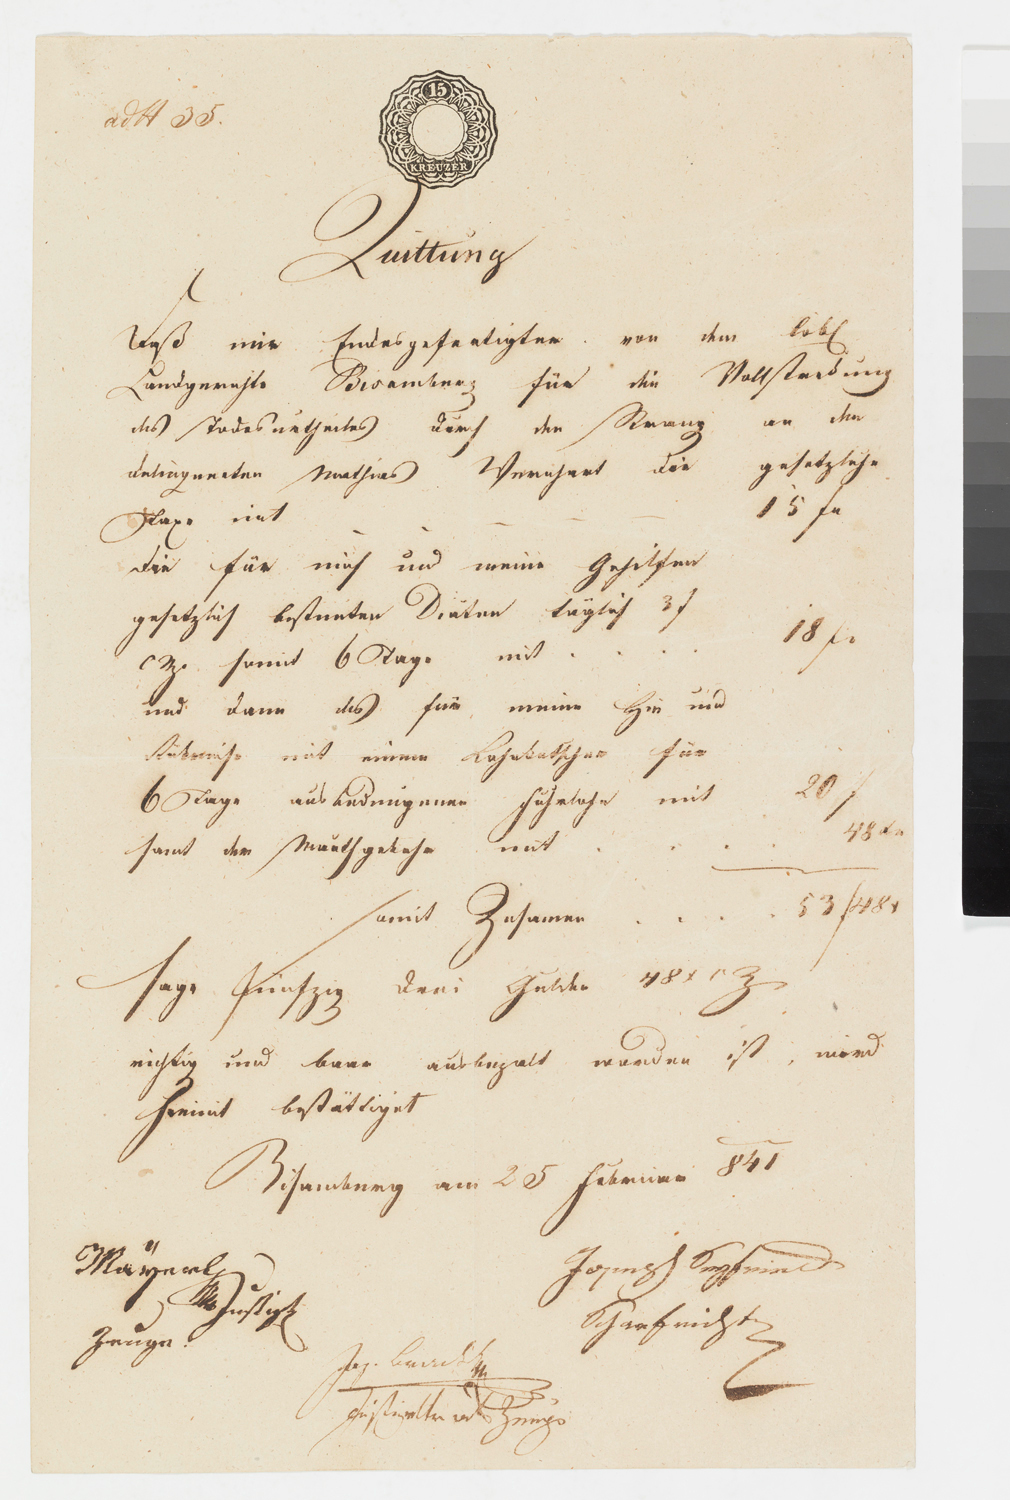 ad № 35.
15
KREUZER
Quittung
Daß mir Endesgefertigten von dem löbl
Landgerichte Bisamberg für die Vollstreckung
des Todesurtheiles durch den Strang an den
delinquenten Mathias die gesetzliche
Taxe mit 15 fr
die für mich und meine Gehilfen
gesetzlich bestimten Diäten täglich 3 f
CM. somit 6 Tage mit . . . . 18 fr
und dann das für meine Hin und
Rükreise mit einem Lohnkutscher für
6 Tage ausbedungenen Fuhrlohn mit 20 f
samt der Mauthgebühr mit . . . . 48 xr
somit Zusamen . . . . 53 f 48 x
sage Fünfzig drei Gulden 48 x CM
richtig und baar ausbezalt worden ist, wird
hiemit bestättiget
Bisamberg am 25 Februar 841
Mayerl
Justiz
Zeuge.
Joseph Seyfried
Scharfrichter
Jos.
Justizverw als Zeuge